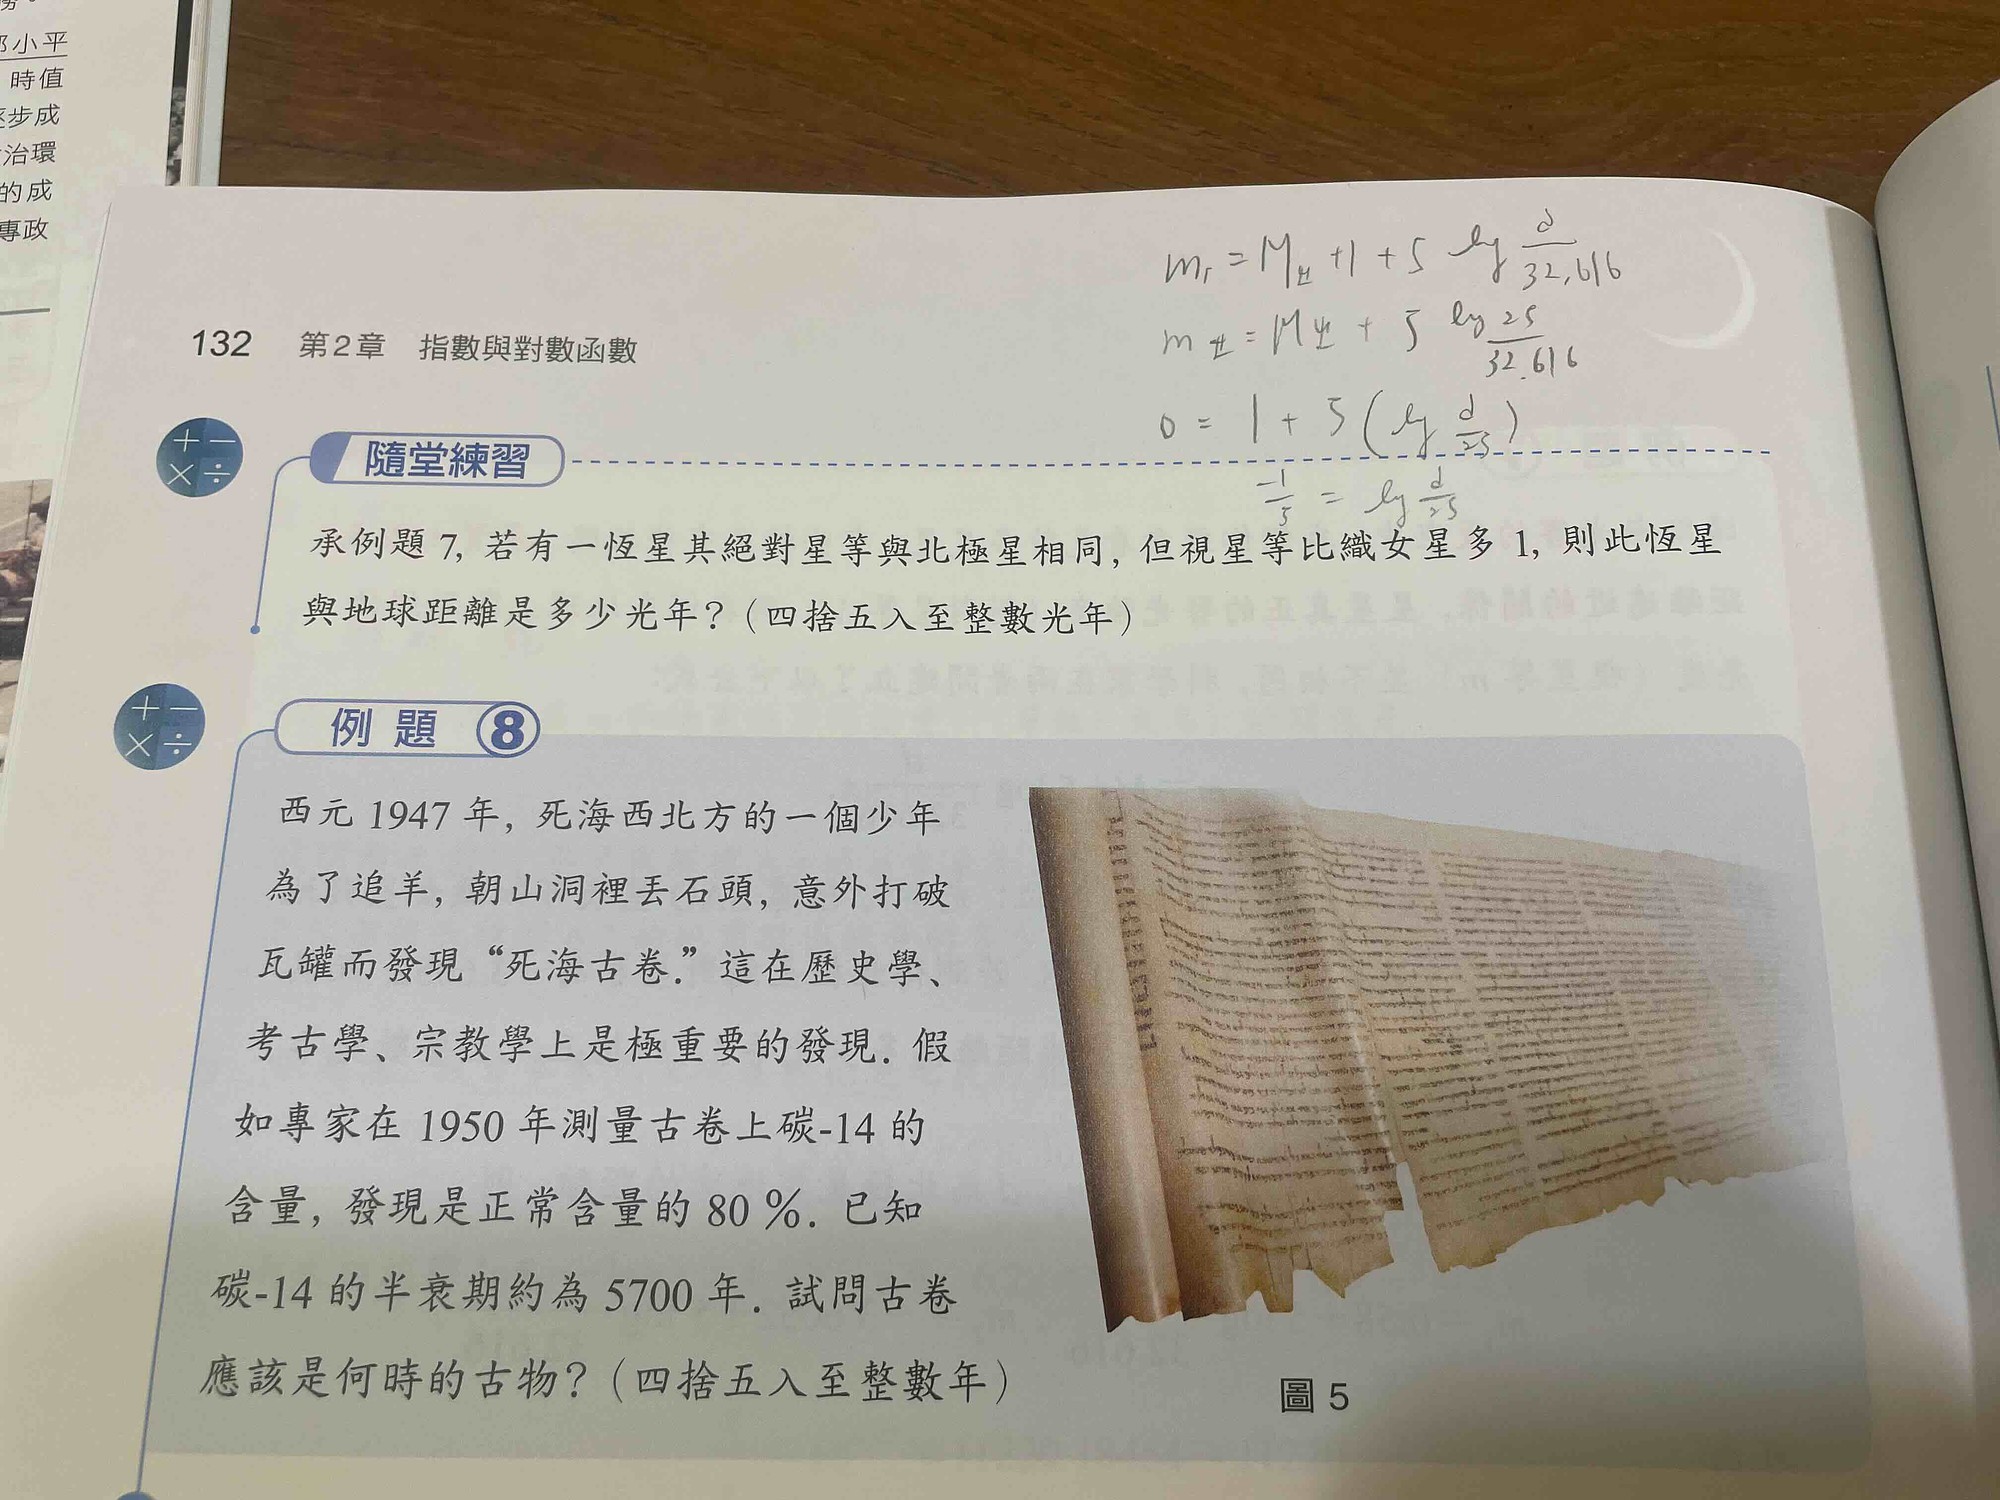 小平
時值
步成
治環
的成
專政
m₁ = M +1 + 5 log d/32.616
m = M + 5 log 25/32.616
0 = 1 + 5 ( log d/25 )
-1/5 = log d/25
132 第2章 指數與對數函數
隨堂練習
承例題 7, 若有一恆星其絕對星等與北極星相同, 但視星等比織女星多 1, 則此恆星
與地球距離是多少光年?(四捨五入至整數光年)
例題 8
西元 1947 年, 死海西北方的一個少年
為了追羊, 朝山洞裡丟石頭, 意外打破
瓦罐而發現 “死海古卷.” 這在歷史學、
考古學、宗教學上是極重要的發現. 假
如專家在 1950 年測量古卷上碳-14 的
含量, 發現是正常含量的 80 %. 已知
碳-14 的半衰期約為 5700 年. 試問古卷
應該是何時的古物?(四捨五入至整數年)
圖 5